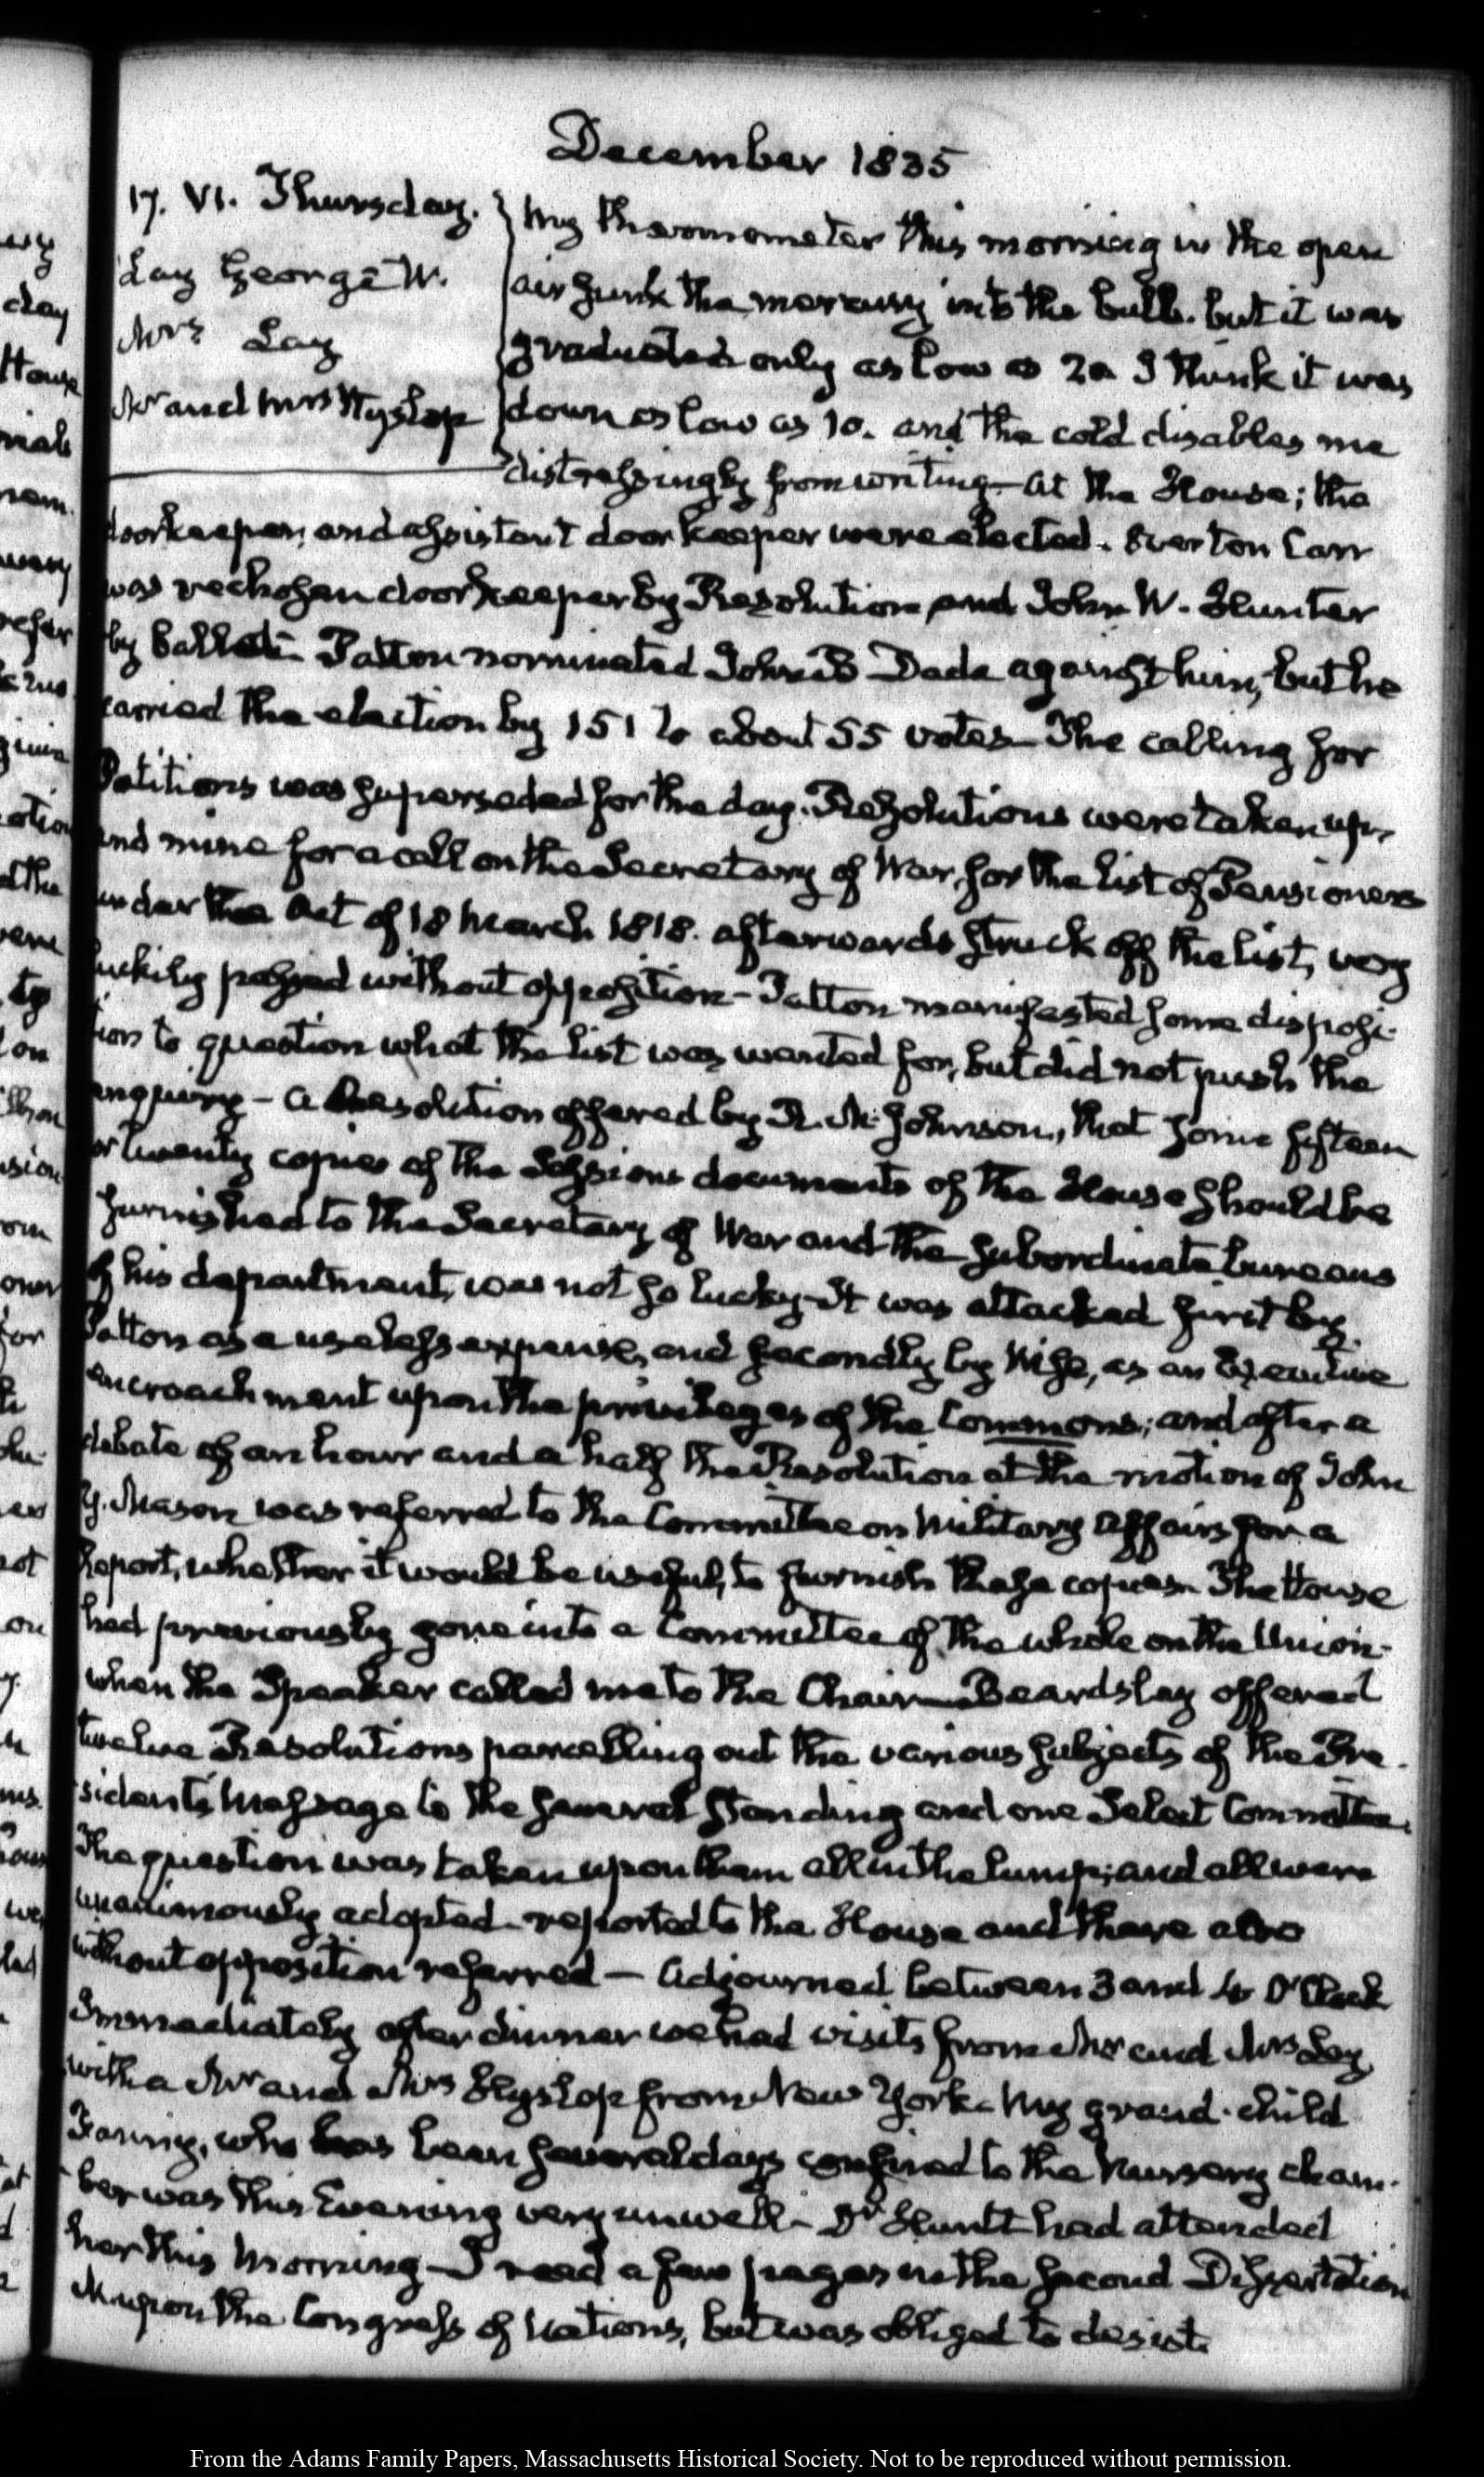 December 1835
17. VI. Thursday.
Lay George W.
Mrs Lay
Mr and Mrs Hyslop
My thermometer this morning in the open
air sunk the mercury into the bulb. but it was
graduated only as low as 20 I think it was
down as low as 10. and the cold disables me
distressingly from writing— At the House; the
doorkeeper, and assistant doorkeeper were elected. Overton Carr
was rechosen doorkeeper by Resolution and John W. Hunter
by ballot— Patton nominated John B Dade against him, but he
carried the election by 151 to about 55 votes— The calling for
Petitions was superseded for the day. Resolutions were taken up,
and mine for a call on the Secretary of War, for the list of Pensioners
under the Act of 18 March 1818. afterwards struck off the list, very
luckily passed without opposition— Patton manifested some disposi-
tion to question what the list was wanted for, but did not push the
enquiry— A Resolution offered by R. M. Johnson, that some fifteen
or twenty copies of the Sessions documents of the House should be
furnished to the Secretary of War and the subordinate bureaus
of his department, was not so lucky— It was attacked first by
Patton as a useless expense, and secondly by Wise, as an Executive
encroachment upon the privileges of the Commons; and after a
debate of an hour and a half the Resolution at the motion of John
Y. Mason was referred to the Committee on Military Affairs for a
Report, whether it would be useful, to furnish these copies— The House
had previously gone into a Committee of the whole on the Union-
when the Speaker called me to the Chair— Beardsley offered
twelve Resolutions parcelling out the various subjects of the Pre-
sident's Message to the several Standing and one Select Committee.
The question was taken upon them all in the lump; and all were
unanimously adopted— reported to the House and there also
without opposition referred— Adjourned between 3 and 4 O'Clock
Immediately after dinner we had visits from Mr and Mrs Lay,
with a Mr and Mrs Hyslop from New York— My grand-child
Fanny, who has been several days confined to the Nursery cham-
ber was this Evening very unwell— Dr Huntt had attended
her this Morning— I read a few pages in the second Dissertation
upon the Congress of Nations, but was obliged to desist.
From the Adams Family Papers, Massachusetts Historical Society. Not to be reproduced without permission.